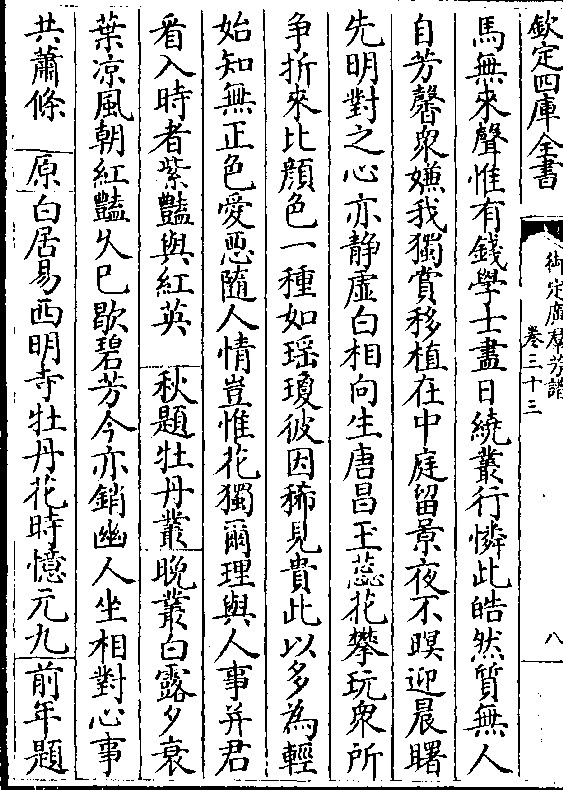 欽定四庫全書
御定廣羣芳譜
卷三十三
八
馬無來聲惟有錢學士盡日繞叢行憐此皓然質無人
自芳馨衆嫌我獨賞移植在中庭留景夜不暝迎晨曙
先明對之心亦静虛白相向生唐昌玉蕊花攀玩衆所
争折來比顔色一種如瑶瓊彼因稀見貴此以多為輕
始知無正色愛惡隨人情豈惟花獨爾理與人事并君
看入時者紫豔與紅英 秋題牡丹叢晚叢白露夕衰
葉凉風朝紅豔久已歇碧芳今亦銷幽人坐相對心事
共蕭條 原白居易西明寺牡丹花時憶元九前年題